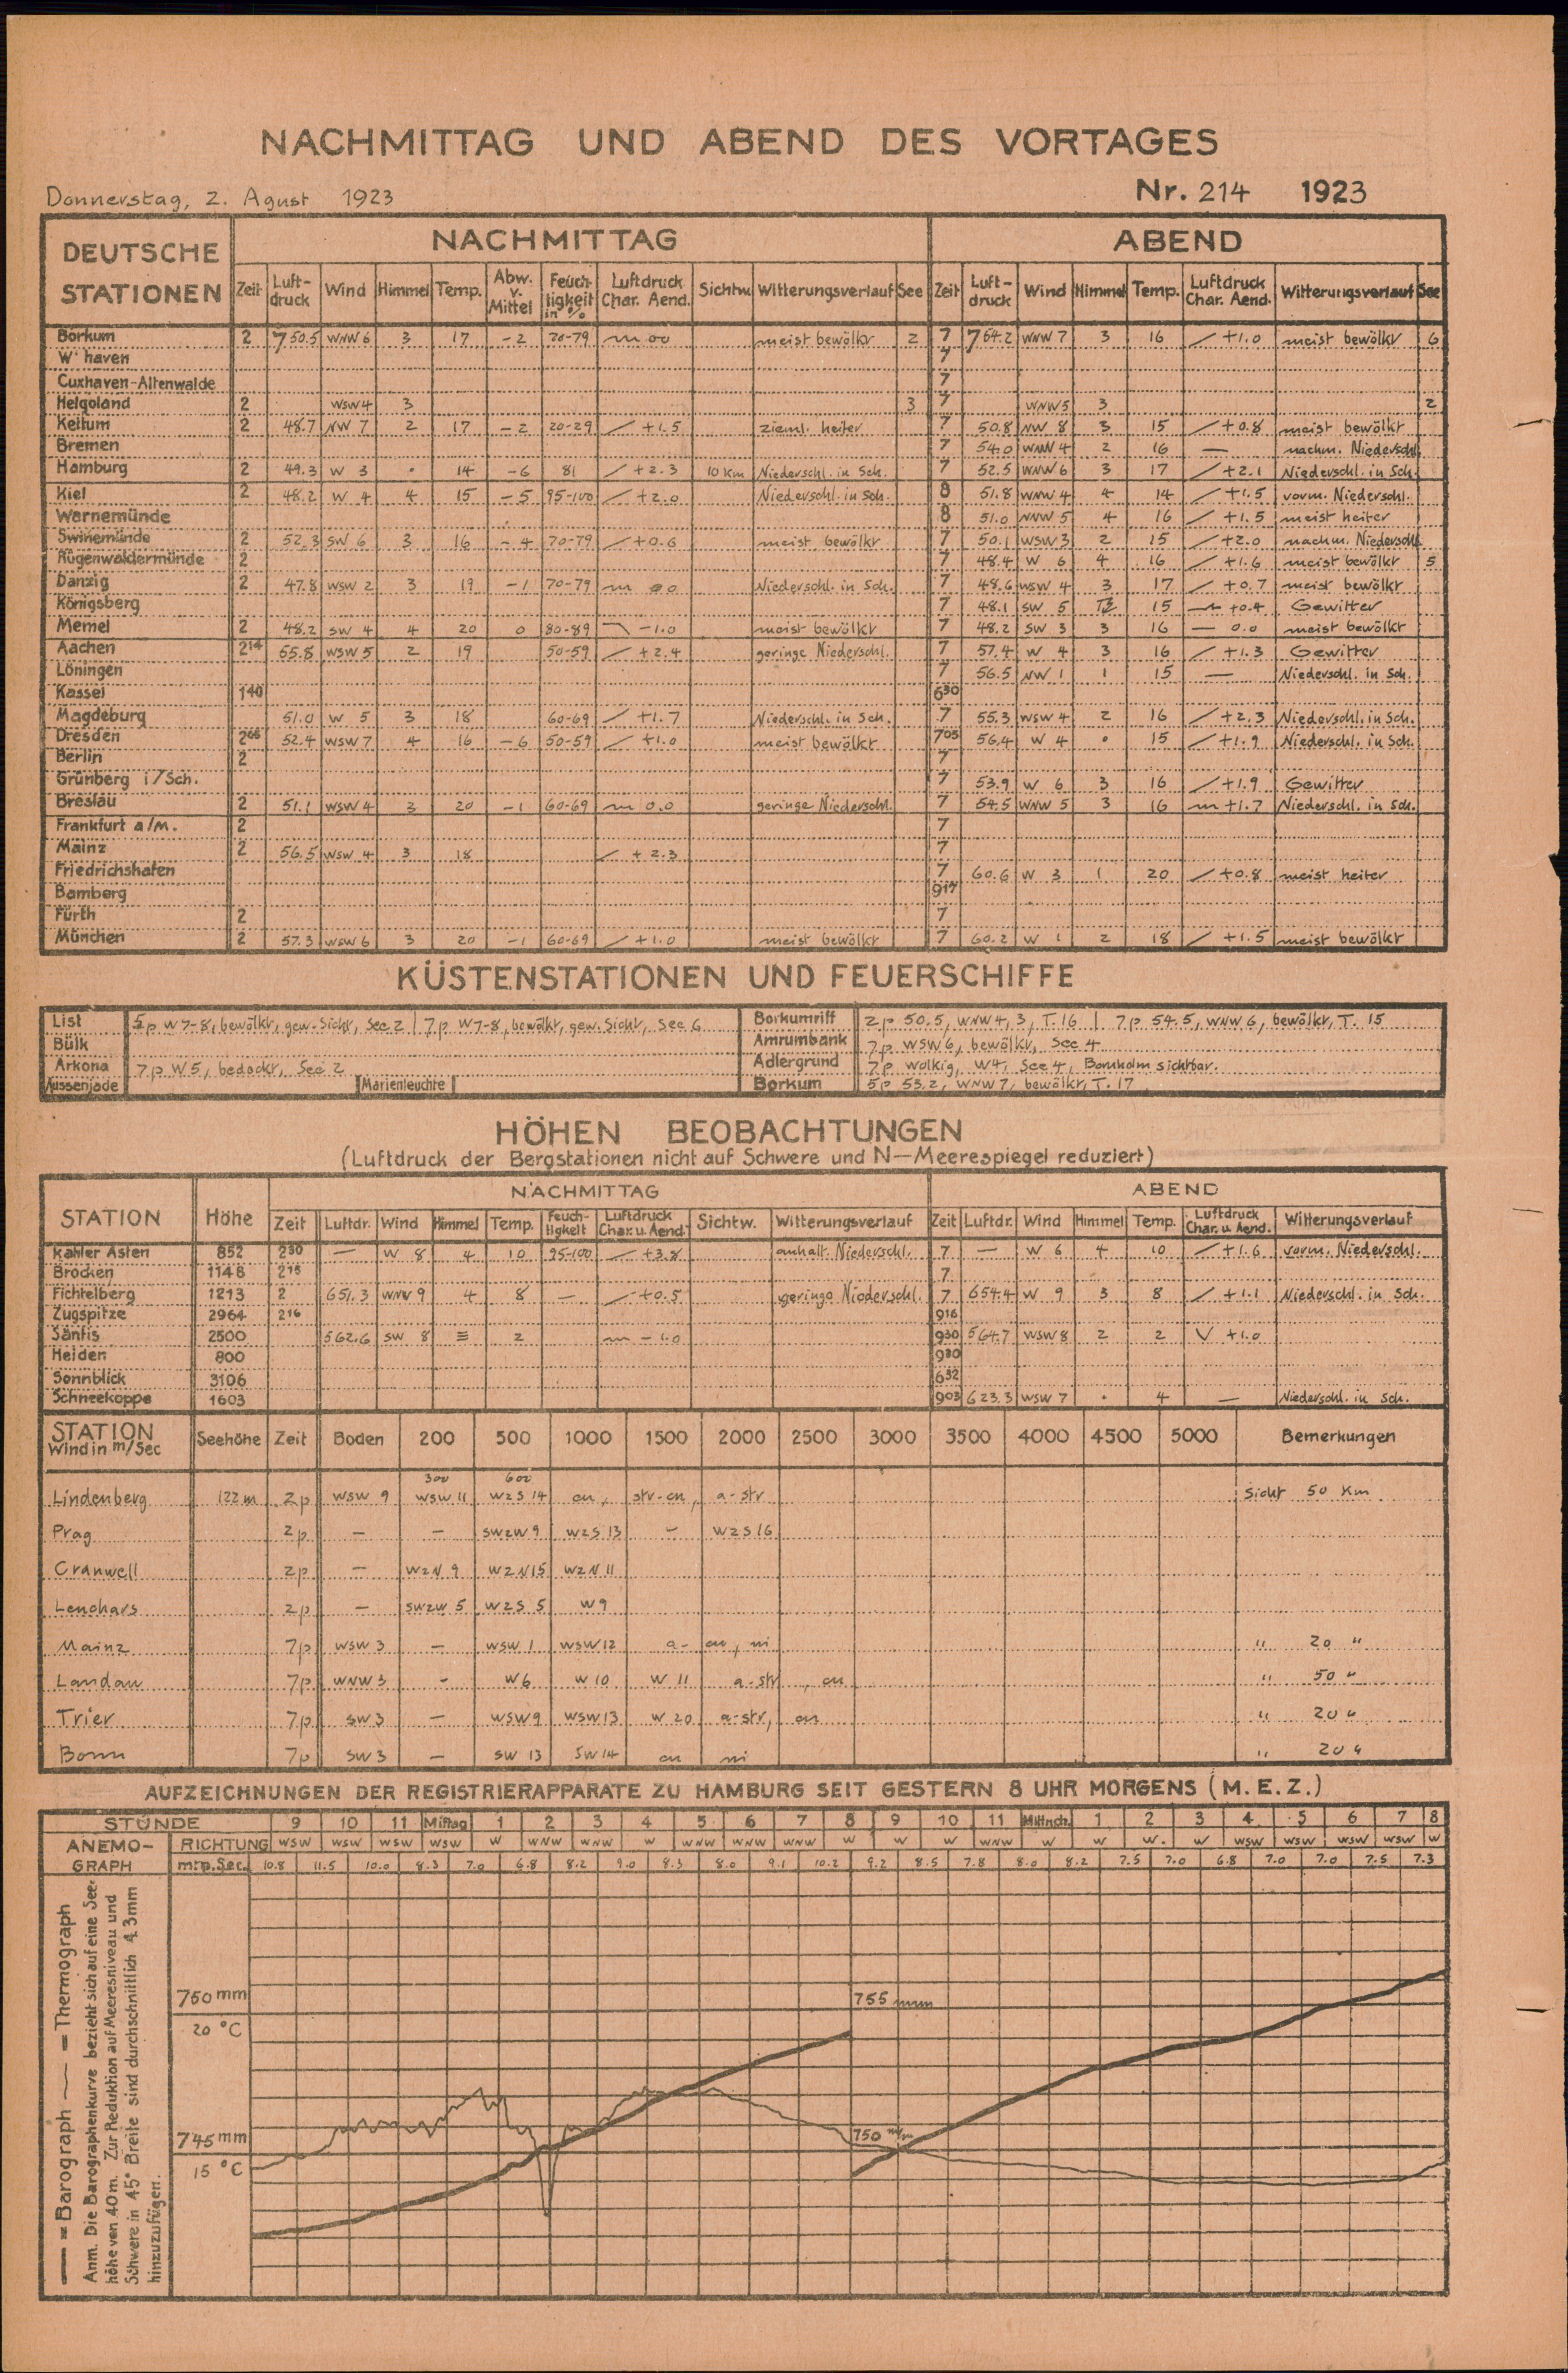 NACHMITTAG UND ABEND DES VORTAGES
Donnerstag, 2. Agust 1923 Nr. 214 1923
DEUTSCHE STATIONEN NACHMITTAG ABEND
Zeit Luft-druck Wind Himmel Temp. Abw. v. Mittel Feuch-tigkeit in % Luftdruck Char. Aend. Sichtw. Witterungsverlauf See Zeit Luft-druck Wind Himmel Temp. Luftdruck Char. Aend. Witterungsverlauf See
Borkum 2 750.5 WNW 6 3 17 -2 70-79 00 meist bewölkt 2 7 754.2 WNW 7 3 16 +1.0 meist bewölkt 6
W'haven 7
Cuxhaven-Altenwalde 7
Helgoland 2 WSW 4 3 3 7 WNW 5 3 2
Keitum 2 48.7 NW 7 2 17 -2 20-29 +1.5 zieml. heiter 7 50.8 NW 8 3 15 +0.8 meist bewölkt
Bremen 7 54.0 WNW 4 2 16 — nachm. Niederschl.
Hamburg 2 49.3 W 3 • 14 -6 81 +2.3 10 Km Niederschl. in Sch. 7 52.5 WNW 6 3 17 +2.1 Niederschl. in Sch.
Kiel 2 48.2 W 4 4 15 -5 95-100 +2.0 Niederschl. in Sch. 8 51.8 WNW 4 4 14 +1.5 vorm. Niederschl.
Warnemünde 8 51.0 NNW 5 4 16 +1.5 meist heiter
Swinemünde 2 52.3 SW 6 3 16 -4 70-79 +0.6 meist bewölkt 7 50.1 WSW 3 2 15 +2.0 nachm. Niederschl.
Rügenwaldermünde 2 7 48.4 W 6 4 16 +1.6 meist bewölkt 5
Danzig 2 47.8 WSW 2 3 19 -1 70-79 00 Niederschl. in Sch. 7 48.6 WSW 4 3 17 +0.7 meist bewölkt
Königsberg 7 48.1 SW 5 15 +0.4 Gewitter
Memel 2 48.2 SW 4 4 20 0 80-89 -1.0 meist bewölkt 7 48.2 SW 3 3 16 — 0.0 meist bewölkt
Aachen 2¹⁴ 55.8 WSW 5 2 19 50-59 +2.4 geringe Niederschl. 7 57.4 W 4 3 16 +1.3 Gewitter
Löningen 7 56.5 NW 1 1 15 — Niederschl. in Sch.
Kassel 1⁴⁰ 6³⁰
Magdeburg 51.0 W 5 3 18 60-69 +1.7 Niederschl. in Sch. 7 55.3 WSW 4 2 16 +2.3 Niederschl. in Sch.
Dresden 52.4 WSW 7 4 16 -6 50-59 +1.0 meist bewölkt 7⁰⁵ 56.4 W 4 • 15 +1.9 Niederschl. in Sch.
Berlin 2 7
Grünberg i/Sch. 7 53.9 W 6 3 16 +1.9 Gewitter
Breslau 2 51.1 WSW 4 3 20 -1 60-69 0.0 geringe Niederschl. 7 54.5 WNW 5 3 16 +1.7 Niederschl. in Sch.
Frankfurt a/M. 2 7
Mainz 2 56.5 WSW 4 3 18 +2.3 7
Friedrichshafen 7 60.6 W 3 1 20 +0.8 meist heiter
Bamberg 9¹⁷
Fürth 2 7
München 2 57.3 WSW 6 3 20 -1 60-69 +1.0 meist bewölkt 7 60.2 W 1 2 18 +1.5 meist bewölkt
KÜSTENSTATIONEN UND FEUERSCHIFFE
List 5p W 7-8, bewölkt, gew. Sicht, See 2 | 7p W 7-8, bewölkt, gew. Sicht, See 6 Borkumriff 2p 50.5, WNW 4, 3, T. 16 | 7p 54.5, WNW 6, bewölkt, T. 15
Bülk Amrumbank 7p WSW 6, bewölkt, See 4
Arkona 7p W 5, bedeckt, See 2 Adlergrund 7p wolkig, W 4, See 4, Bornholm sichtbar.
Aussenjade Marienleuchte Borkum 5p 53.2, WNW 7, bewölkt, T. 17
HÖHEN BEOBACHTUNGEN
(Luftdruck der Bergstationen nicht auf Schwere und N—Meerespiegel reduziert)
STATION Höhe NACHMITTAG ABEND
Zeit Luftdr. Wind Himmel Temp. Feuch-tigkeit Luftdruck Char. u. Aend. Sichtw. Witterungsverlauf Zeit Luftdr. Wind Himmel Temp. Luftdruck Char. u. Aend. Witterungsverlauf
Kahler Asten 852 2³⁰ — W 8 4 10 95-100 +3.8 anhalt. Niederschl. 7 — W 6 4 10 +1.6 vorm. Niederschl.
Brocken 1148 2¹⁵ 7
Fichtelberg 1213 2 651.3 WNW 9 4 8 — +0.5 geringe Niederschl. 7 654.4 W 9 3 8 +1.1 Niederschl. in Sch.
Zugspitze 2964 2¹⁶ 9¹⁶
Säntis 2500 562.6 SW 8 ≡ 2 -1.0 9³⁰ 564.7 WSW 8 2 2 +1.0
Heiden 800 9³⁰
Sonnblick 3106 6³²
Schneekoppe 1603 9⁰³ 623.3 WSW 7 • 4 — Niederschl. in Sch.
STATION Wind in m/Sec Seehöhe Zeit Boden 200 500 1000 1500 2000 2500 3000 3500 4000 4500 5000 Bemerkungen
300 600
Lindenberg 122 m 2p WSW 9 WSW 11 WzS 14 cu, str-cu, a-str Sicht 50 Km
Prag 2p — — SWzW 9 WzS 13 — WzS 16
Cranwell 2p — WzN 9 WzN 15 WzN 11
Lenchars 2p — SWzW 5 WzS 5 W 9
Mainz 7p WSW 3 — WSW 1 WSW 12 a-cu, ni " 20 "
Landau 7p WNW 3 — W 6 W 10 W 11 a-str, cu " 50 "
Trier 7p SW 3 — WSW 9 WSW 13 W 20 a-str, cu " 20 "
Bonn 7p SW 3 — SW 13 SW 14 cu ni " 20 "
AUFZEICHNUNGEN DER REGISTRIERAPPARATE ZU HAMBURG SEIT GESTERN 8 UHR MORGENS (M. E. Z.)
STUNDE 9 10 11 Mittag 1 2 3 4 5 6 7 8 9 10 11 Mittnch. 1 2 3 4 5 6 7 8
ANEMO-GRAPH RICHTUNG WSW WSW WSW WSW W WNW WNW W WNW WNW WNW W W W WNW W W W W WSW WSW WSW WSW W
mtr.p.Sec. 10.8 11.5 10.0 8.3 7.0 6.8 8.2 9.0 8.3 8.0 9.1 10.2 9.2 8.5 7.8 8.0 8.2 7.5 7.0 6.8 7.0 7.0 7.5 7.3
— = Barograph — = Thermograph
Anm. Die Barographenkurve bezieht sich auf eine See-
höhe von 40 m. Zur Reduktion auf Meeresniveau und
Schwere in 45° Breite sind durchschnittlich 4,3 mm
hinzuzufügen.
750 mm 755 mm
20 °C
745 mm 750 m/m
15 °C